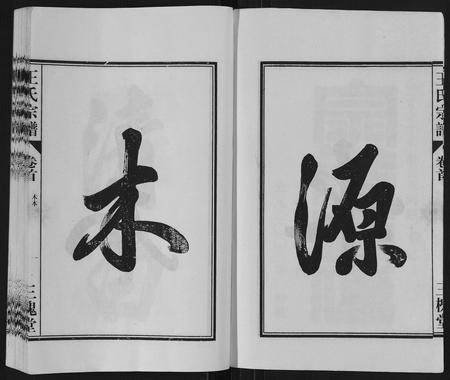 王氏宗譜
卷首
三槐堂
源
木
王氏宗譜
卷首
木本
一
三槐堂